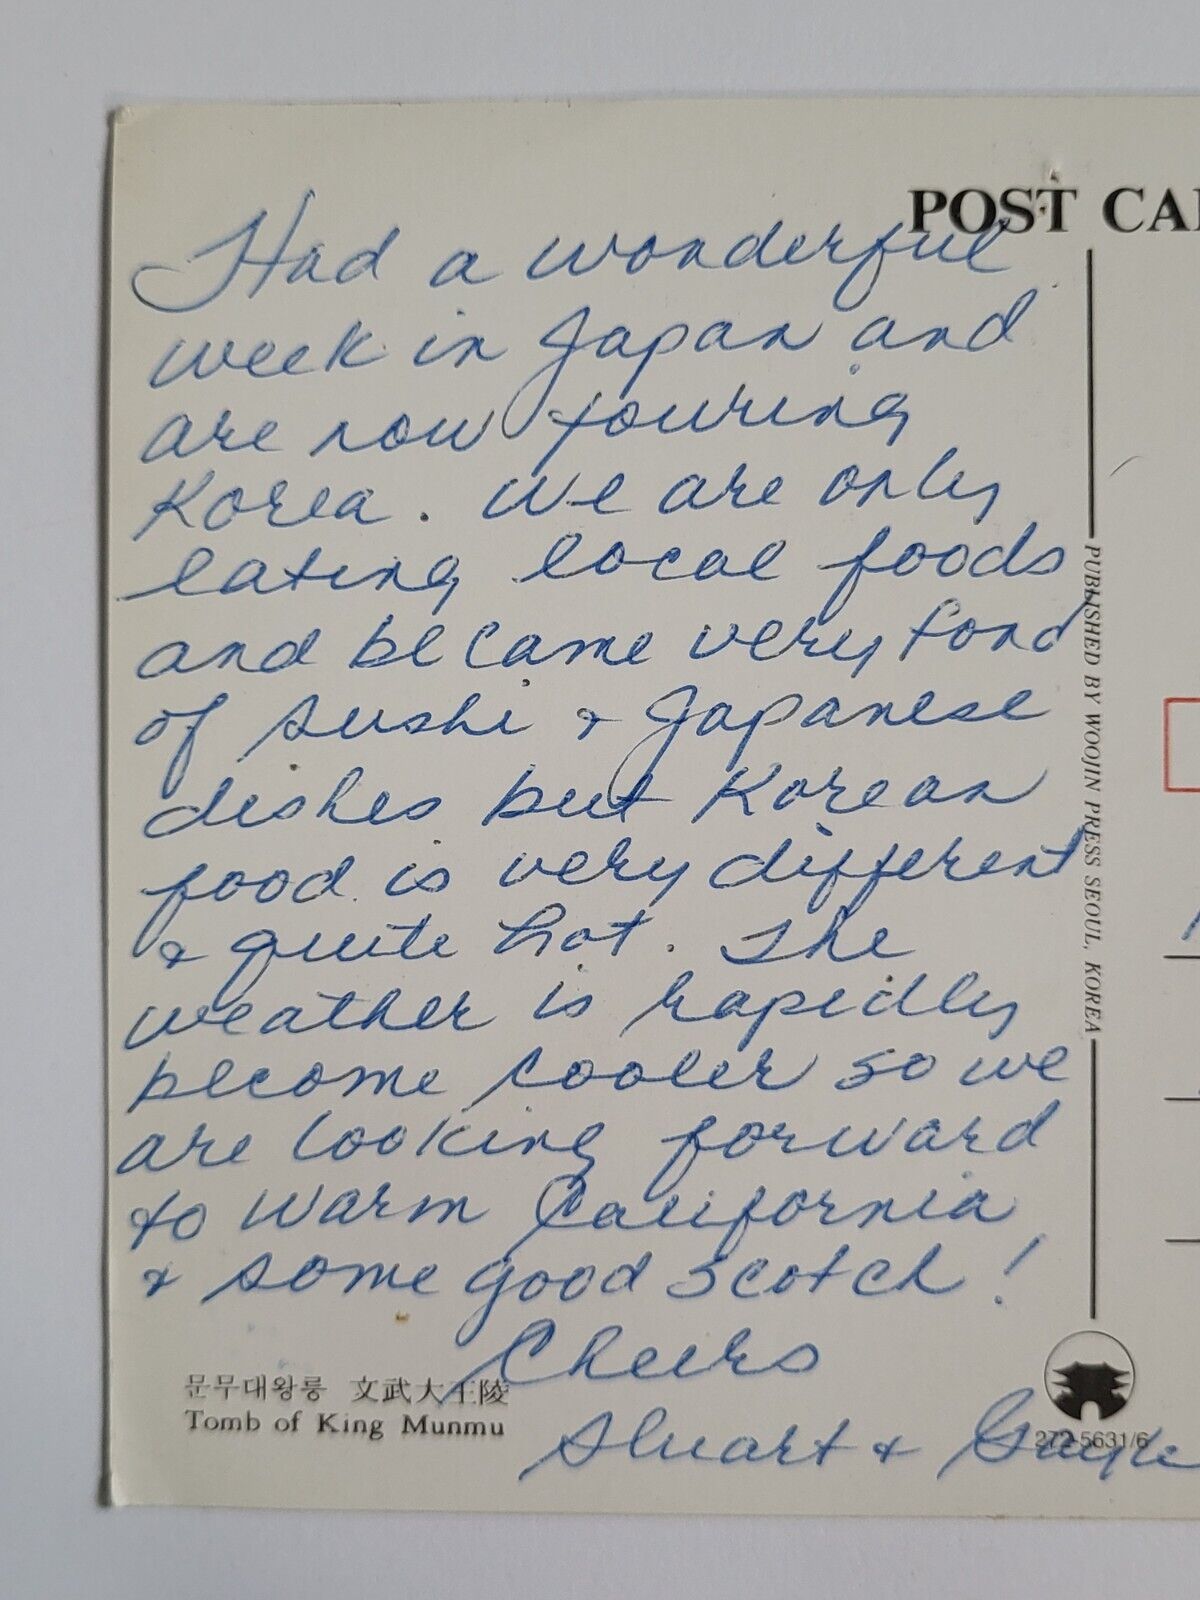 POST CA
Had a wonderful
week in Japan and
are now touring
Korea. We are only
eating local foods
and became very fond
of sushi & Japanese
dishes but Korean
food is very different
& quite hot. The
weather is rapidly
become cooler so we
are looking forward
to warm California
& some good scotch!
Cheers
Stuart & Gayle
문무대왕릉 文武大王陵
Tomb of King Munmu
272-5631/6
PUBLISHED BY WOOJIN PRESS SEOUL, KOREA